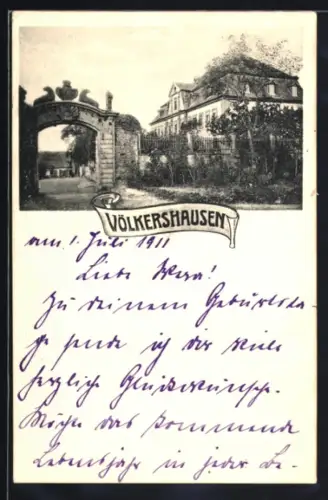 VÖLKERSHAUSEN
am 1. Juli 1911
Liebe Wera!
Zu deinem Geburtsta-
ge sende ich dir viele
herzliche Glückwünsche.
Möchte das kommende
Lebensjahr in jeder Be-